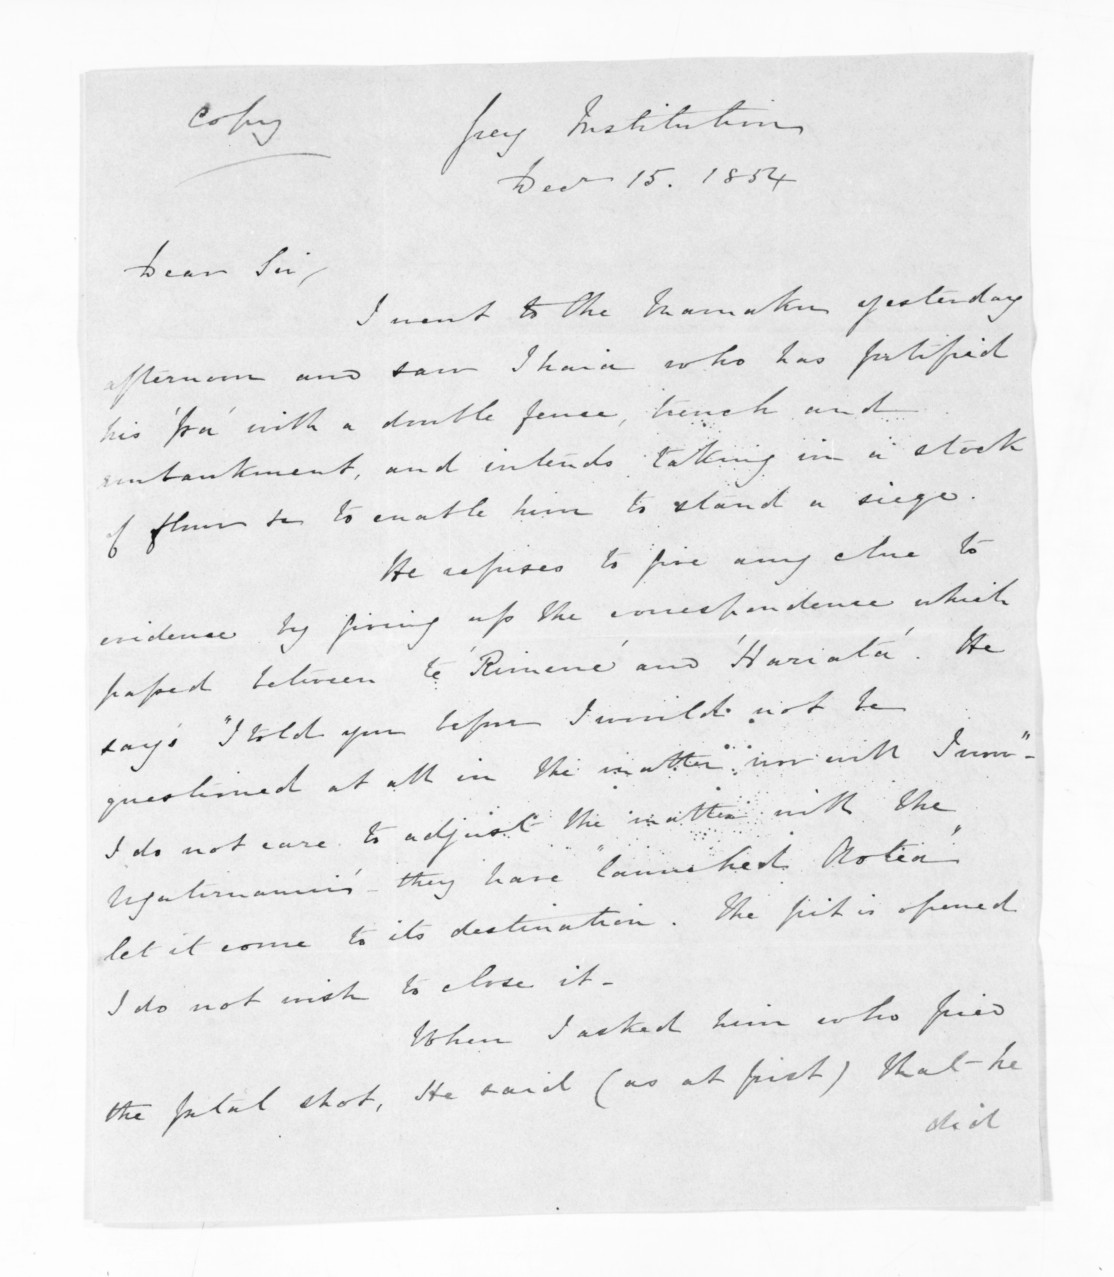 Copy
Grey Institution
Decr 15. 1854
Dear Sir,
I went to the Mamaku yesterday
afternoon and saw Ihaia who has fortified
his 'pa' with a double fence, trench and
embankment, and intends taking in a stock
of flour &c to enable him to stand a siege.
He refuses to give any clue to
evidence by giving up the correspondence which
passed between te 'Rimene' and 'Hariata'. He
says "I told you before I would not be
questioned at all in the matter nor will I now"-
I do not care to adjust the matter with the
Ngatiruanui's - they have "launched Aotea"
let it come to its destination. The pit is opened
I do not wish to close it -
When I asked him who fired
the fatal shot, He said (as at first) that he
did